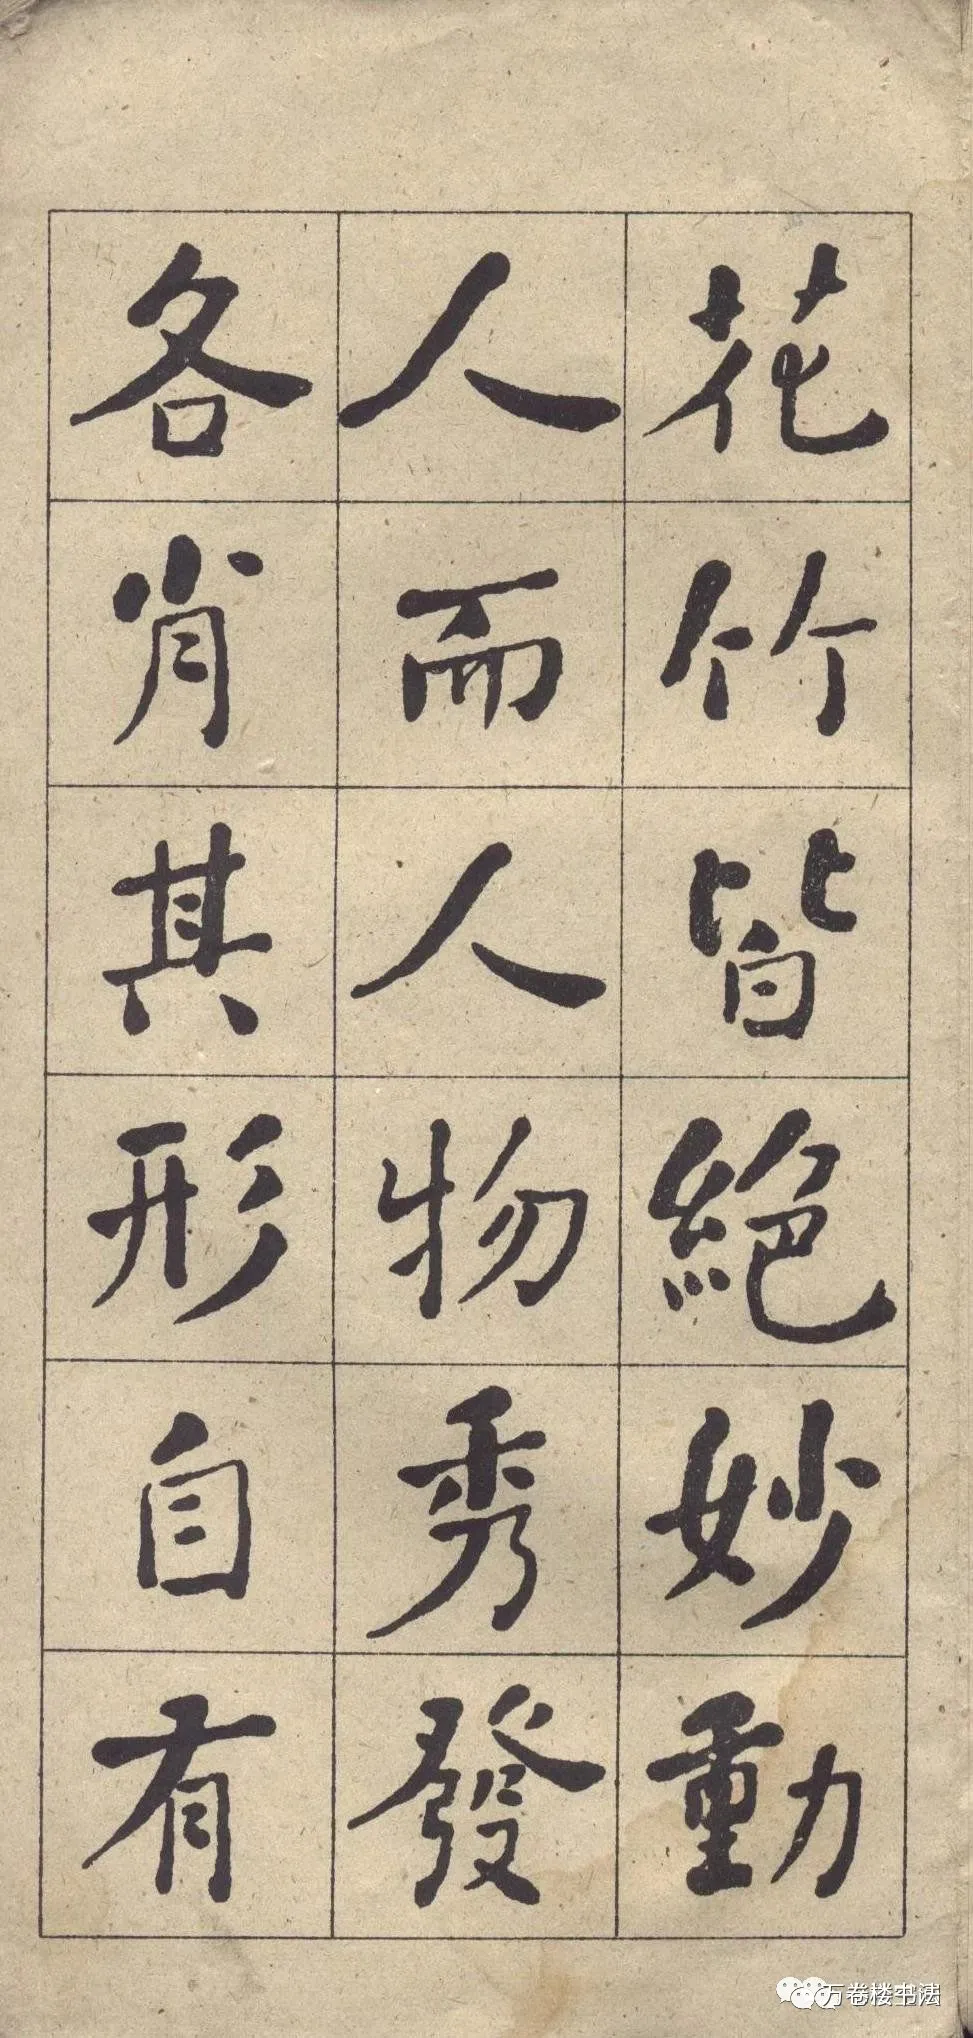 花竹皆絕妙動
人而人物秀發
各肖其形自有
万卷楼书法